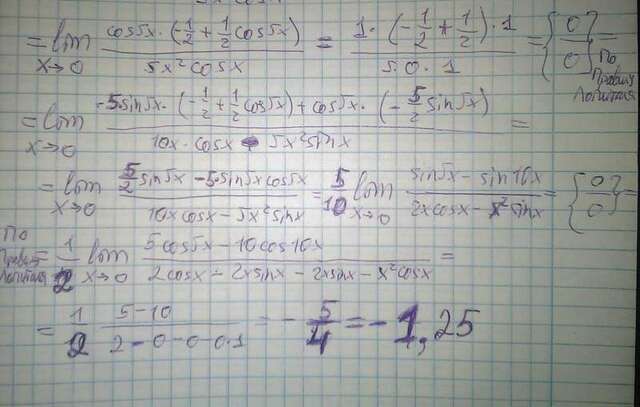 = lim x→0 cos5x·(-1/2+1/2cos5x) / 5x²cosx = 1·(-1/2+1/2)·1 / 5·0·1 = {0/0} = По правилу Лопиталя
= lim x→0 -5sin5x·(-1/2+1/2cos5x)+cos5x·(-5/2sin5x) / 10x·cosx - 5x²sinx =
= lim x→0 5/2sin5x-5sin5xcos5x / 10xcosx-5x²sinx = 5/10 lim x→0 sin5x-sin10x / 2xcosx-x²sinx = {0/0} =
По правилу Лопиталя 1/2 lim x→0 5cos5x-10cos10x / 2cosx-2xsinx-2xsinx-x²cosx =
= 1/2 5-10 / 2-0-0-0·1 = -5/4 = -1,25